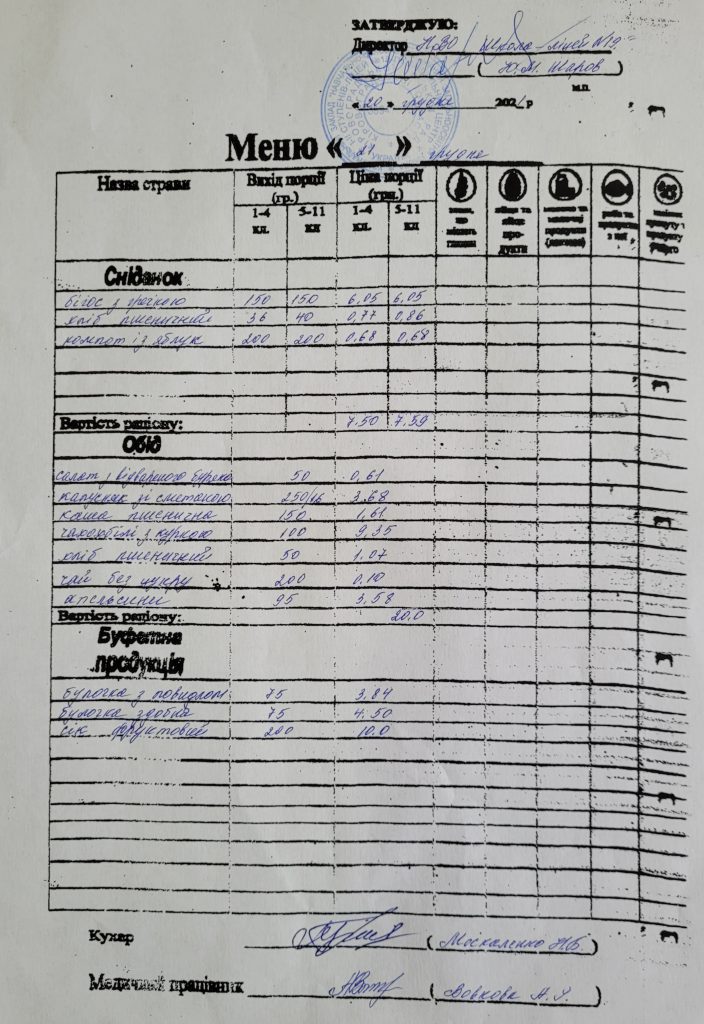 ЗАТВЕРДЖУЮ:
Директор НВО "Школа-ліцей №19"
(Ю.М. Шаров)
м.п.
« 20 » грудня 2021 р
Меню « 21 » грудня
Назва страви Вихід порції (гр.) Ціна порції (грн.)
1-4 кл. 5-11 кл 1-4 кл. 5-11 кл
Сніданок
бігос з гречкою 150 150 6,05 6,05
хліб пшеничний 36 40 0,77 0,86
компот із яблук 200 200 0,68 0,68
Вартість раціону: 7.50 7.59
Обід
салат з відвареного буряка 50 0,61
капусняк зі сметаною 250/16 3.68
каша пшенична 150 1,61
чахохбілі з куркою 100 9,35
хліб пшеничний 50 1.07
чай без цукру 200 0,10
апельсини 95 3,58
Вартість раціону: 20.0
Буфетна
продукція
булочка з повидлом 75 3,84
булочка здобна 75 4,50
сік фруктовий 200 10.0
Кухар (Москаленко Н.Б.)
Медичний працівник (Вовкова